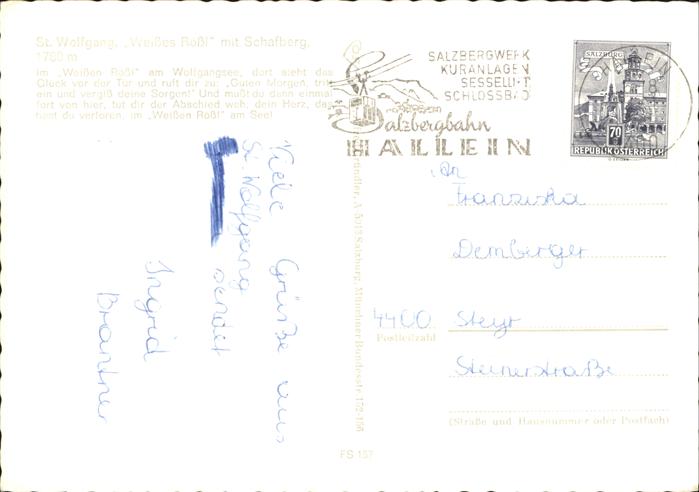 St. Wolfgang, „Weißes Rößl" mit Schafberg,
1780 m
Im „Weißen Rößl" am Wolfgangsee, dort steht das
Glück vor der Tür und ruft dir zu: „Guten Morgen, tritt
ein und vergiß deine Sorgen! Und mußt du dann einmal
fort von hier, tut dir der Abschied weh, dein Herz, das
hast du verloren, im „Weißen Rößl" am See!
SALZBERGWERK
KURANLAGEN
SESSELLIFT
SCHLOSSBAD
Salzbergbahn
HALLEIN
SALZBURG
70
REPUBLIK ÖSTERREICH
Viele Grüße aus
St. Wolfgang
sendet
Ingrid
Brantner
A-5013 Salzburg, Münchner Bundesstr. 152-156
An
Franziska
Demberger
4400 Steyr
Postleitzahl
Steinerstraße
(Straße und Hausnummer oder Postfach)
FS 157